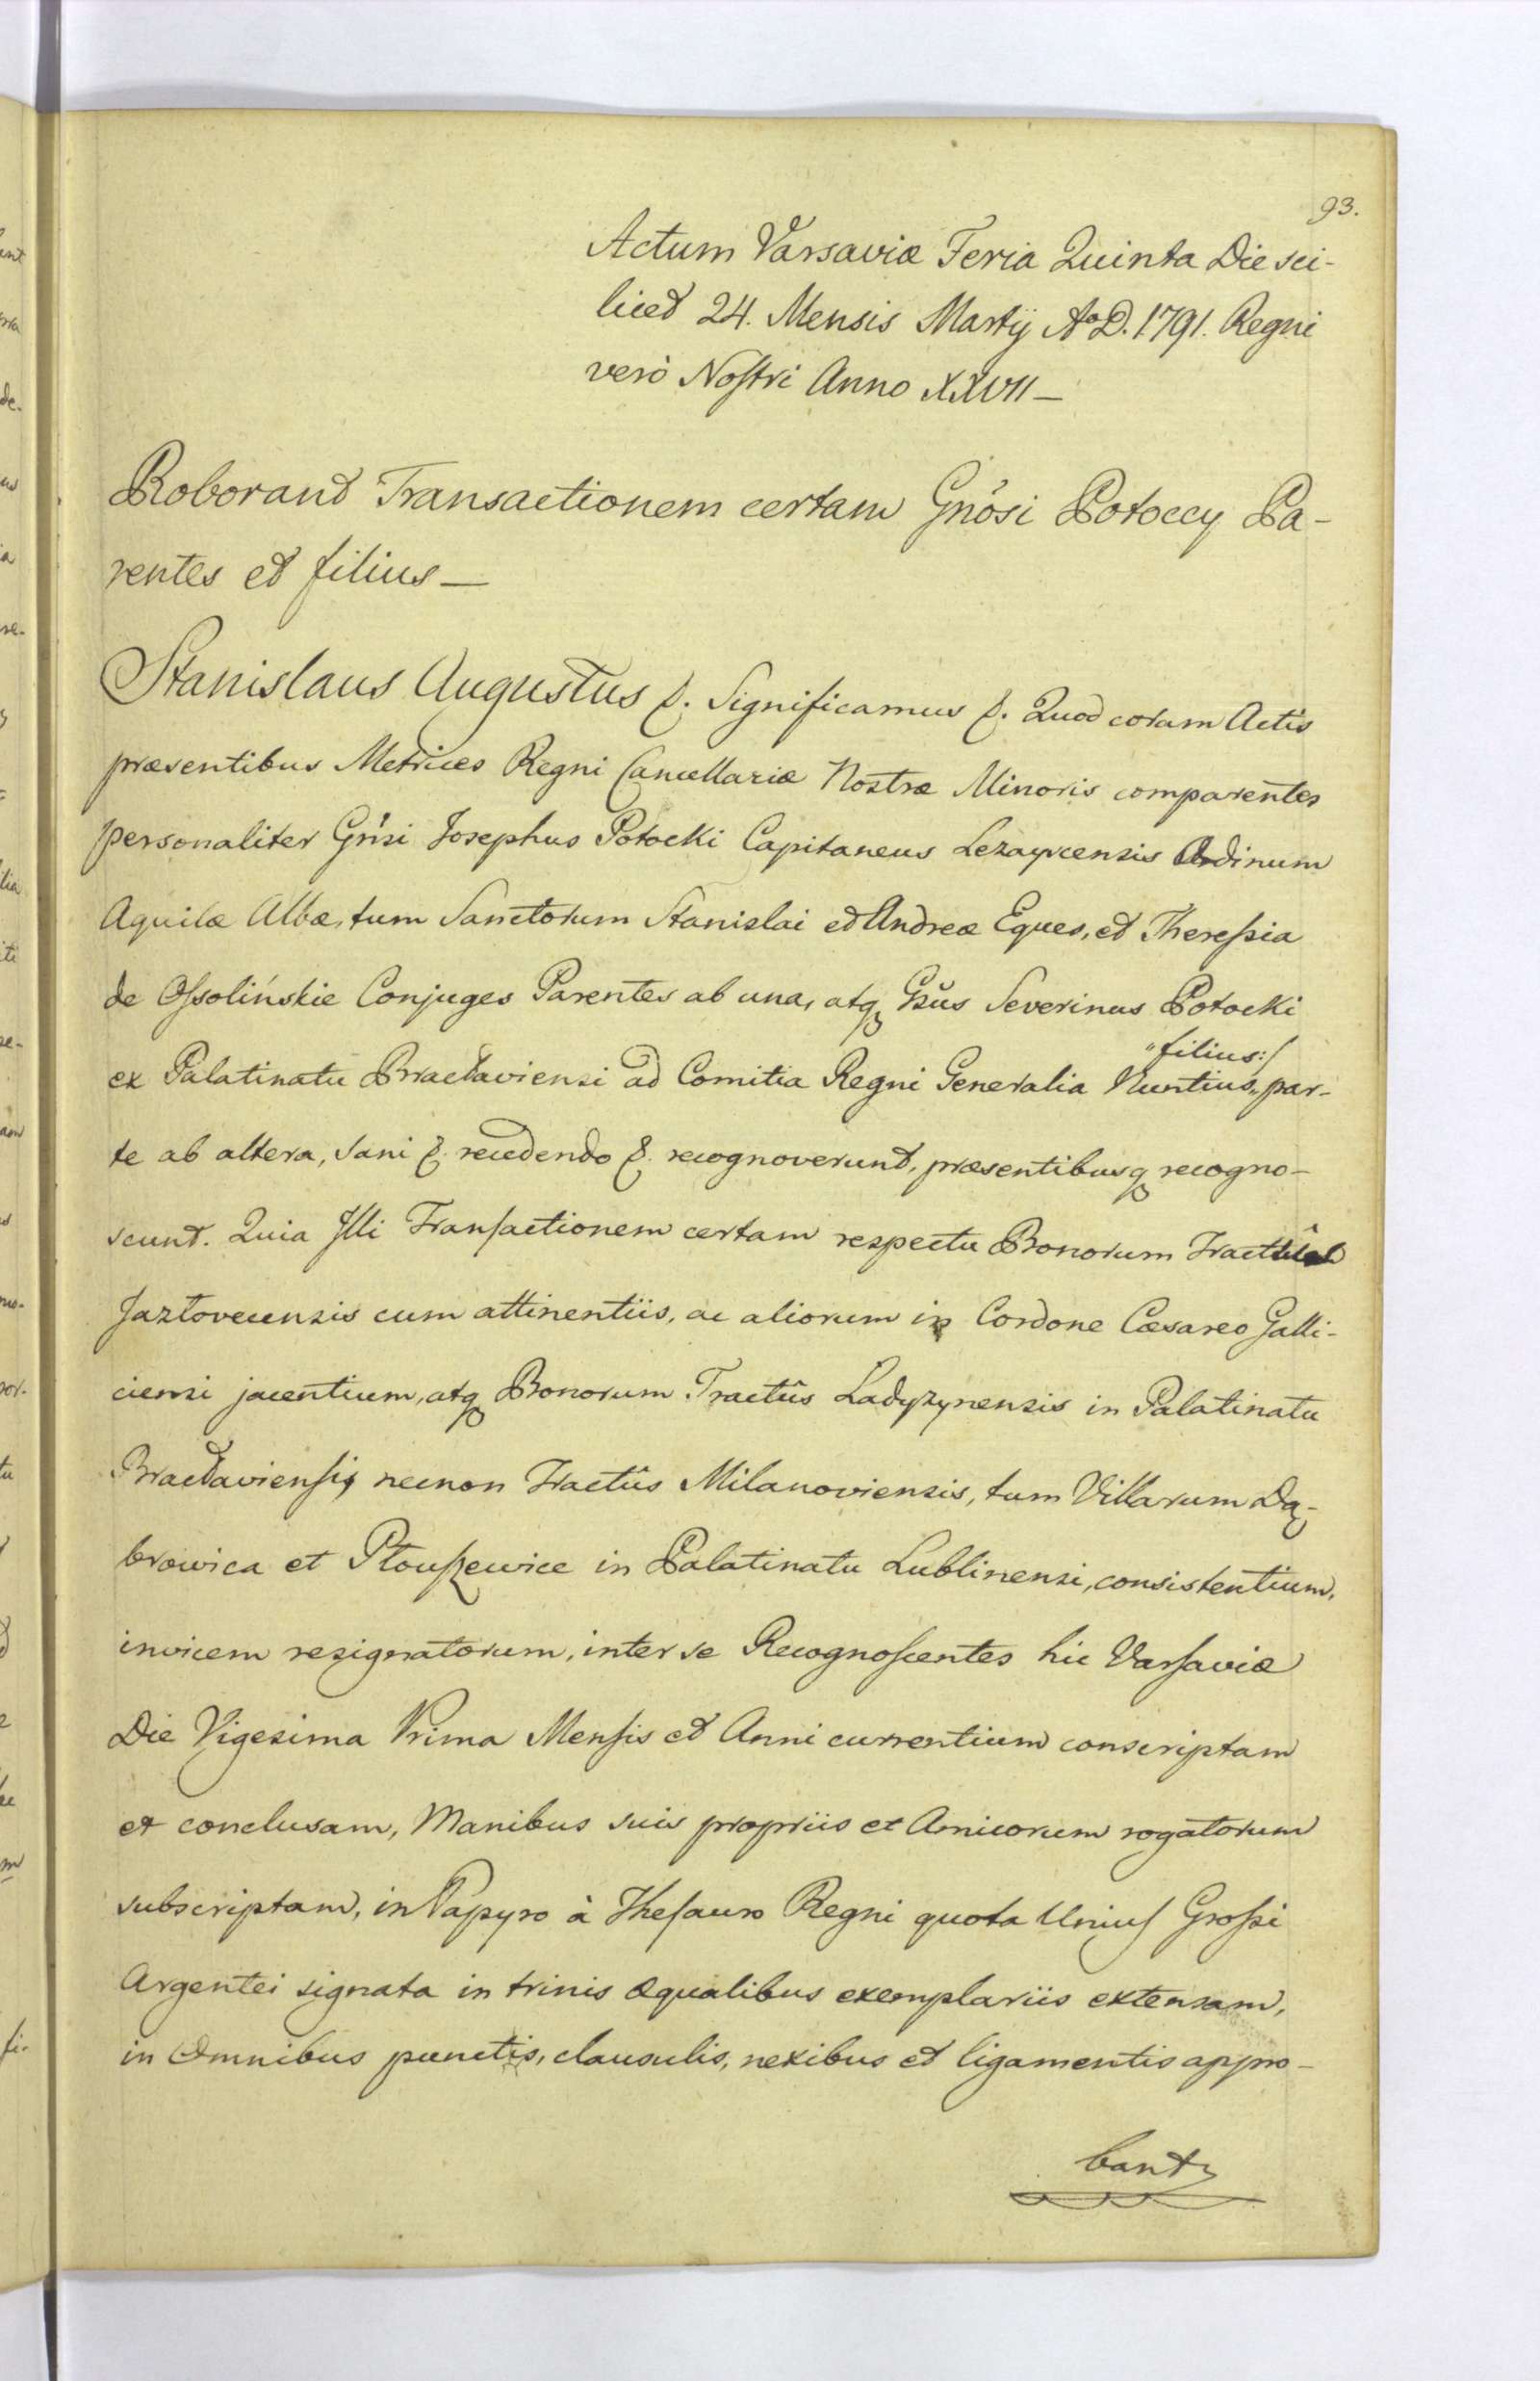 93.
Actum Varsaviæ Feria Quinta Die sci-
licet 24. Mensis Martij Aº D. 1791. Regni
verò Nostri Anno XXVII —
Roborant Transactionem certam Gnősi Potoccy Pa-
rentes et filius —
Stanislaus Augustus &. Significamus &. Quod coram Actis
præsentibus Metrices Regni Cancellariæ Nostræ Minoris comparentes
personaliter Gn̈si Josephus Potocki Capitaneus Lezaycensis Ordinum
Aquilæ Albæ, tum Sanctorum Stanislai et Andreæ Eques, et Theressia
de Ossolińskie Conjuges Parentes ab una, atq Gsűs Severinus Potocki
"filius:/
ex Palatinatu Bracłaviensi ad Comitia Regni Generalia Nuntius,, par-
te ab altera, sani &. recedendo &. recognoverunt, præsentibusq recogno-
scunt. Quia Illi Transactionem certam respectu Bonorum Tractûs
Jazłovecensis cum attinentiis, ac aliorum in Cordone Cæsareo Galli-
ciensi jacentium, atq Bonorum Tractûs Ladyzynensis in Palatinatu
Bracłaviensi, necnon Tractûs Milanoviensis, tum Villarum Dą-
browica et Płouszewice in Palatinatu Lublinensi, consistentium,
invicem resignatorum, inter se Recognoscentes hic Varsaviæ
Die Vigesima Prima Mensis et Anni currentium conscriptam
et conclusam, Manibus suis propriis et Amicorum rogatorum
subscriptam, in Papyro à Thesauro Regni quota Unius Grossi
Argentei signata in trinis æqualibus exemplariis extensam,
in Omnibus punctis, clausulis, nexibus et ligamentis appro-
bant